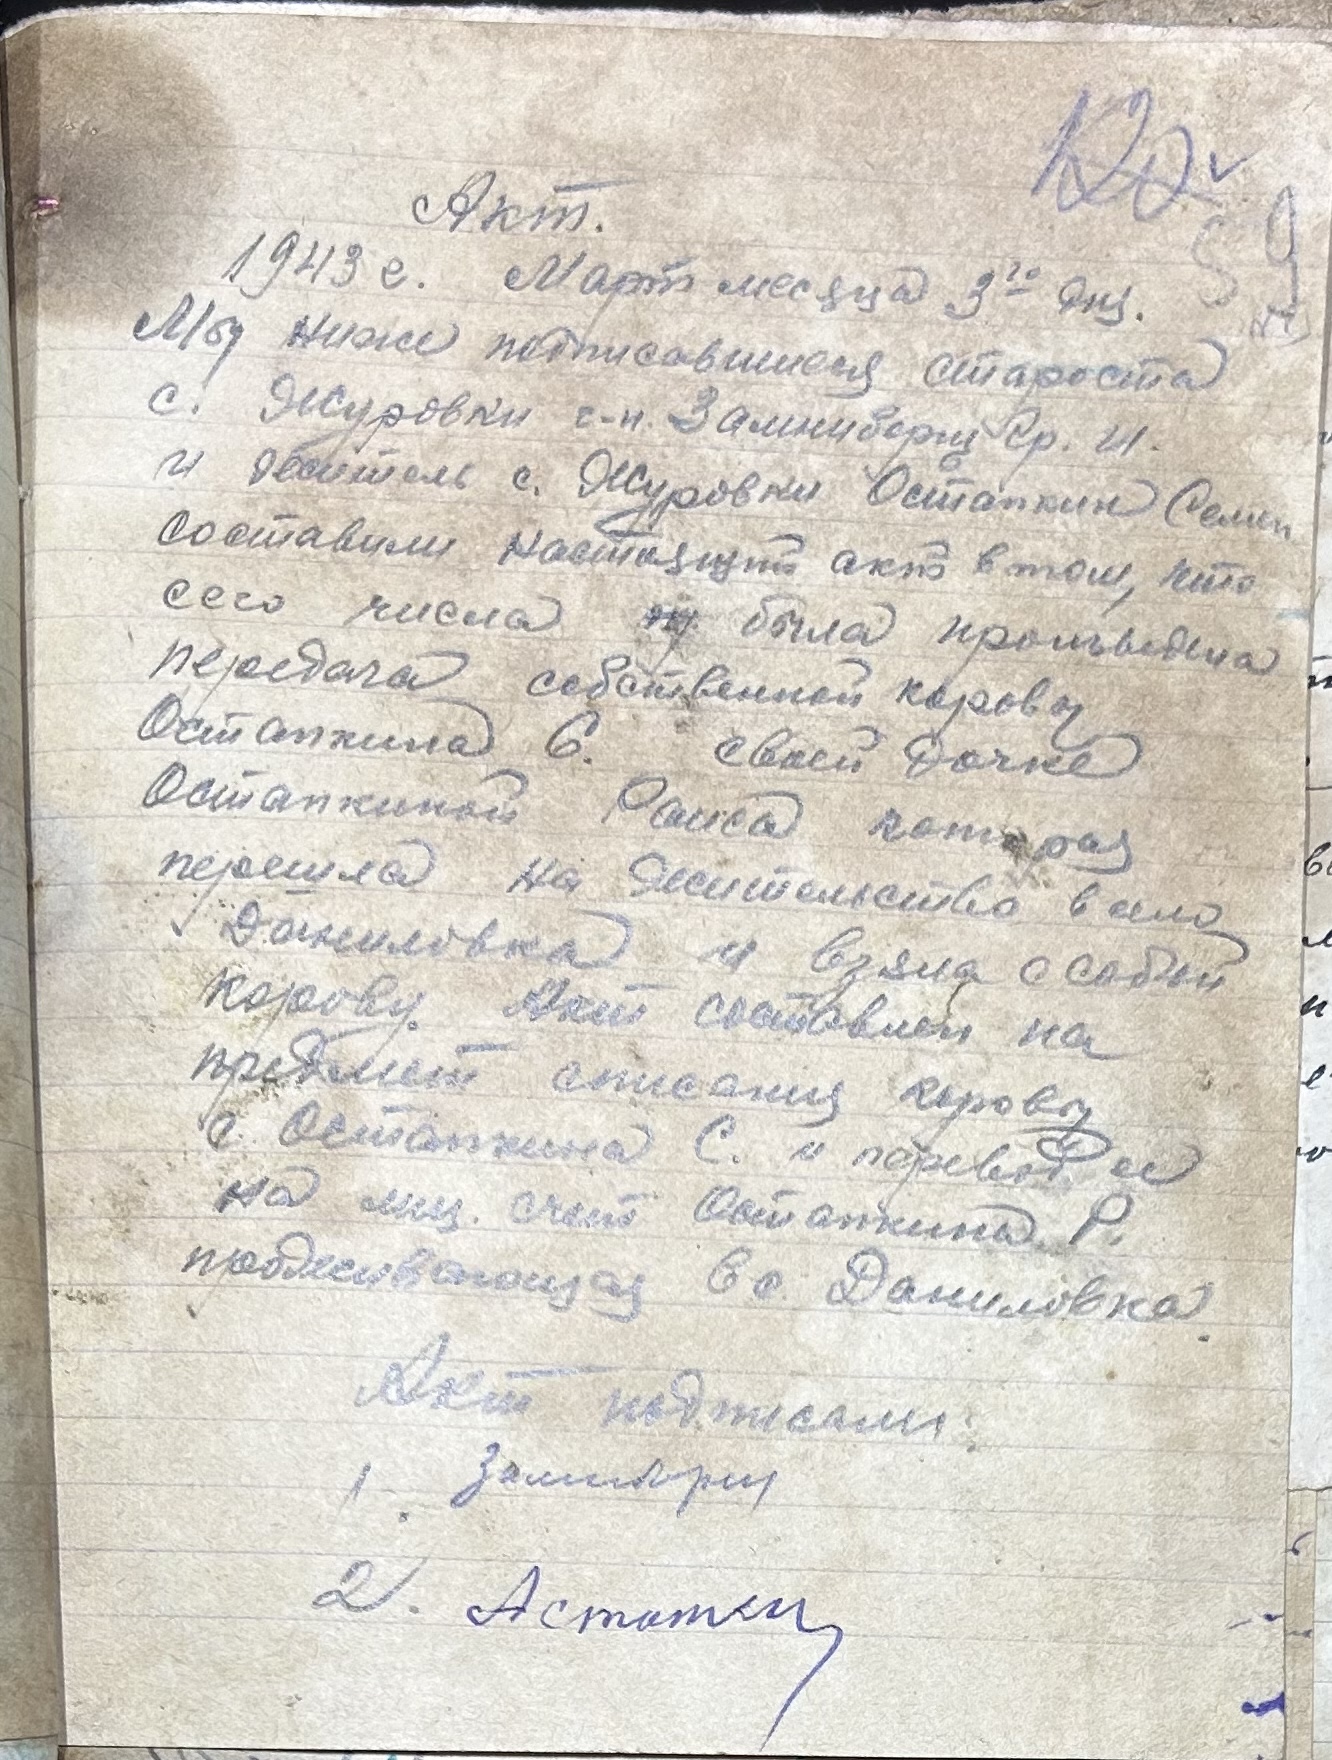 120
59
Акт.
1943 г. Март месяца 3го дня.
Мы ниже подписавшиеся староста
с. Журовки г-н. Гр. И.
и житель с. Журовки Остапкин Семен
составили настоящий акт в том, что
сего числа была произведена
передача собственной коровы
Остапкина С. своей дочке
Остапкиной Раиса которая
перешла на жительство в село
Даниловка и взяла с собой
корову. Акт составлен на
предмет списания коровы
с Остапкина С. и перевод ее
на лиц. счет Остапкина Р.
проживающая в с Даниловка
Акт подписали:
1.
2. Астапкин